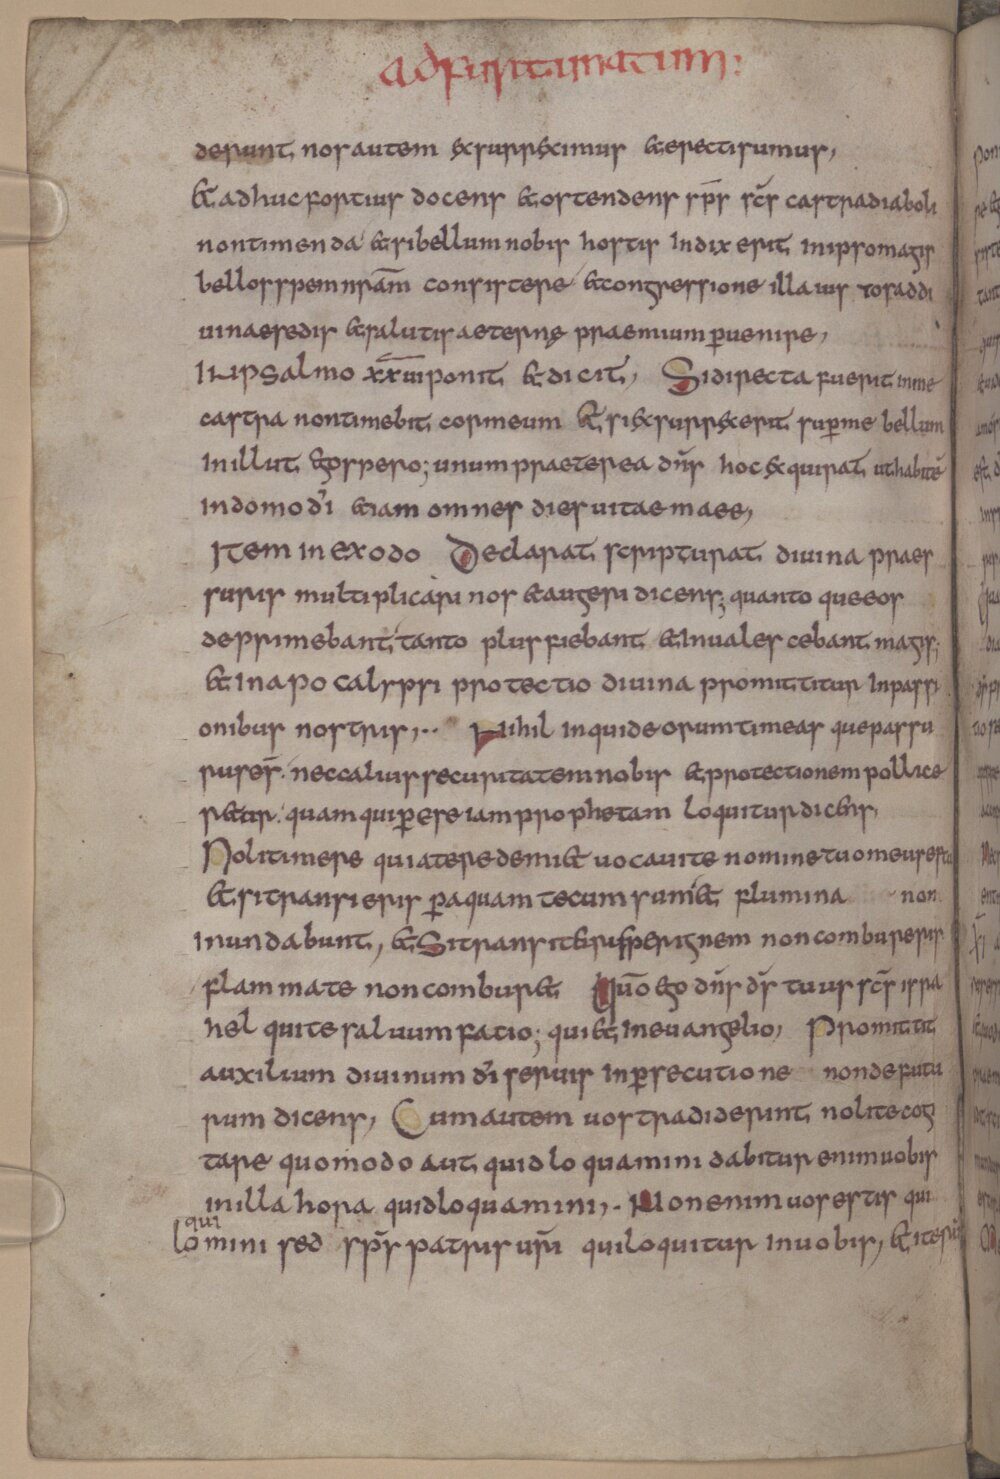 ad furitunatum:
derunt nos autem exsurreximus & erecti sumus,
& adhuc fortius docens & ostendens sp̄s sc̄s castra diaboli
non timenda & si bellum nobis hostis indixerit in ipso magis
bello spem nr̄am consistere & congressione illa iustos ad di
uinae sedis & salutis aeternę praemium peruenire,
IN psalmo xxvi ponit & dicit, Si directa fuerit in me
castra non timebit cor meum & si exsurrexerit super me bellum
in illut ego spero; unum praeterea dn̄s hoc exquiram ut habitē
in domo dī &iam omnes dies uitae maee,
Item in exodo Declarat scripturat diuina praes
suris multiplicari nos & augeri dicens; quanto que eos
deprimebant tanto plus fiebant & inualescebant magis;
& in apocalypsi protectio diuina promittitur in passi
onibus nostris,·· Nihil inquid eorum timeas que passu
rus es. nec calius securitatem nobis & protectionem pollice
r&ur. quam qui per eseiam prophetam loquitur dicens,
Noli timere quia te redemi & uocaui te nomine tuo meus es tu
& si transieris per aquam tecum sum & flumina non
inundabunt, & Si transieris per ignem non combureris
flamma te non combur& Quō ego dn̄s ds̄ tuus sc̄s isra
hel qui te saluum facio; qui & in euangelio, Promittit
auxilium diuinum dī seruis in persecutione non defutu
rum dicens, Cum autem uos tradiderint nolite cogi
tare quomodo aut quid loquamini dabitur enim uobis
in illa hora quid loquamini,· Non enim uos estis qui
loquimini sed sp̄s patris ur̄i qui loquitur in uobis, & iterū